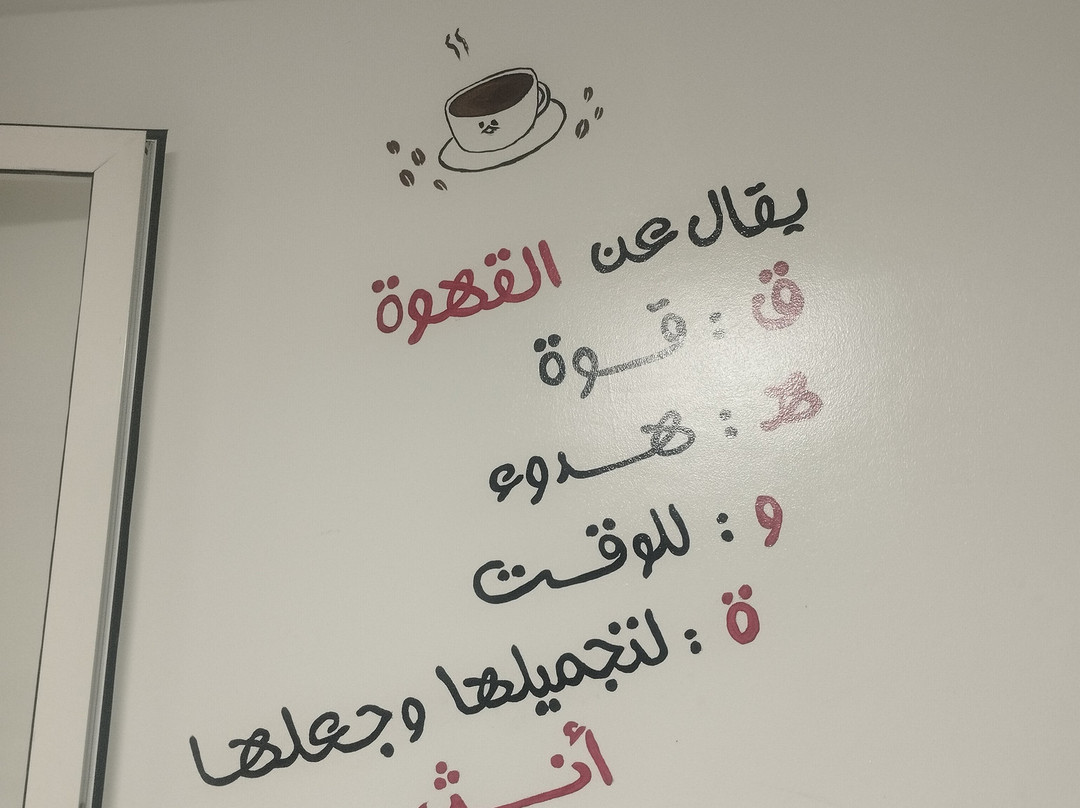 يقال عن القهوة
ق : قوة
هـ : هدوء
و : للوقت
ة : لتجميلها وجعلها